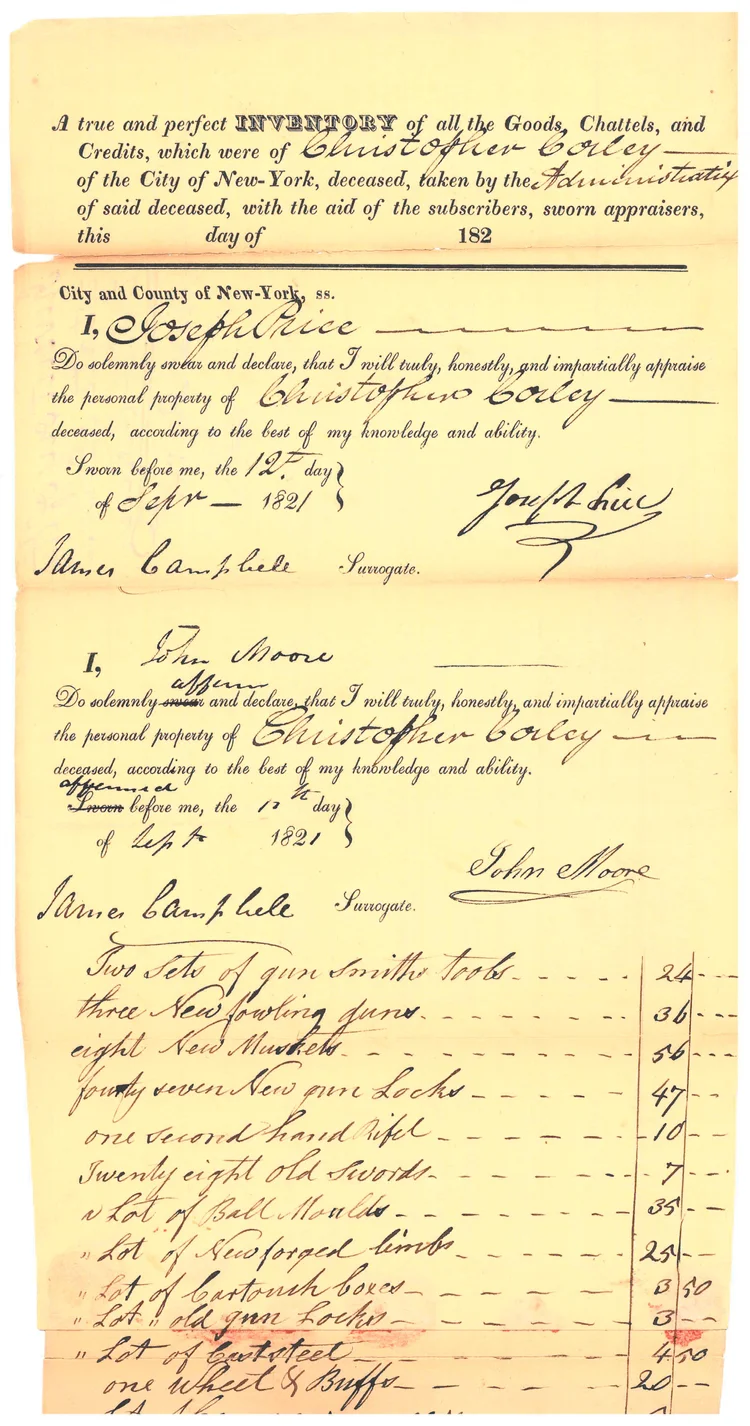 A true and perfect INVENTORY of all the Goods, Chattels, and
Credits, which were of Christopher Corley
of the City of New-York, deceased, taken by the Administratix
of said deceased, with the aid of the subscribers, sworn appraisers,
this day of 182
City and County of New-York, ss.
I, Joseph Price
Do solemnly swear and declare, that I will truly, honestly, and impartially appraise
the personal property of Christopher Corley
deceased, according to the best of my knowledge and ability.
Sworn before me, the 12th day
of Sepr 1821
Joseph Price
James Campbele Surrogate.
I, John Moore
affirm
Do solemnly swear and declare, that I will truly, honestly, and impartially appraise
the personal property of Christopher Corley
deceased, according to the best of my knowledge and ability.
affirmed
Sworn before me, the 12th day
of Sept 1821
John Moore
James Campbele Surrogate.
Two Sets of gun smiths tools 24
three New fowling guns 36
eight New Muskets 56
fourty seven New gun Locks 47
one second hand Rifel 10
Twenty eight old Swords 7
a Lot of Ball Moulds 35
" Lot of New forged limbs 25
" Lot of Cartouch boxes 3 50
" Lot " old gun Locks 3
" Lot of Cast steel 4 50
one wheel & Buffs 20